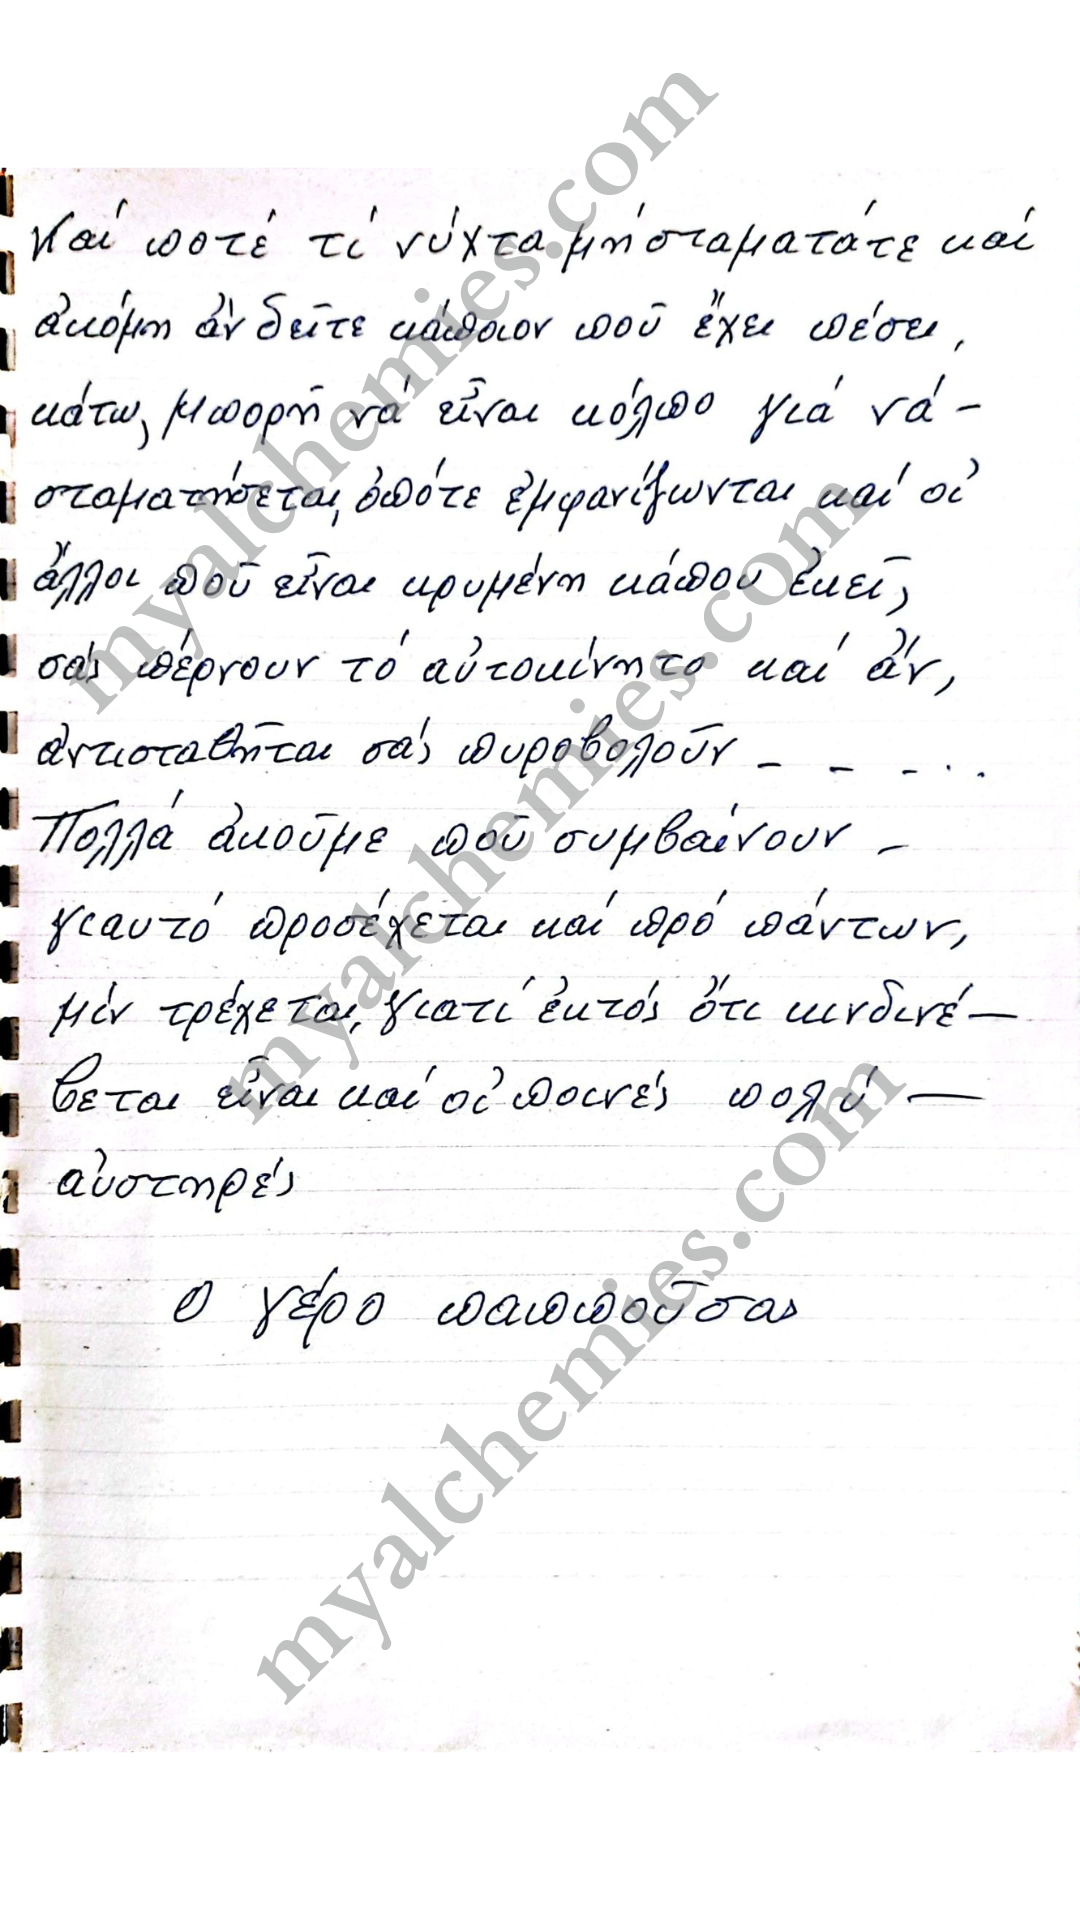 Καί ποτέ τί νύχτα μήσταματάτε καί
ἀκόμη ἀν δεῖτε κάποιον ποῦ ἔχει πέσει,
κάτω, μπορῆ νά εἶναι κόλπο γιά νά -
σταματήσεται, ὁπότε ἐμφανίζωνται καί οἱ
ἄλλοι ποῦ εἶναι κρυμένη κάπου ἐκεῖ,
σάς πέρνουν τό αὐτοκίνητο καί ἀν,
ἀντισταθῆται σάς πυροβολοῦν - - - . .
Πολλά ἀκοῦμε ποῦ συμβαίνουν -
γιαυτό προσέχεται καί πρό πάντων,
μίν τρέχεται, γιατί ἐκτός ὅτι κινδινέ -
βεται εἶναι καί οἱ ποινές πολύ -
αὐστηρές
Ο γέρο παππούσας
myalchemies.com
myalchemies.com
myalchemies.com